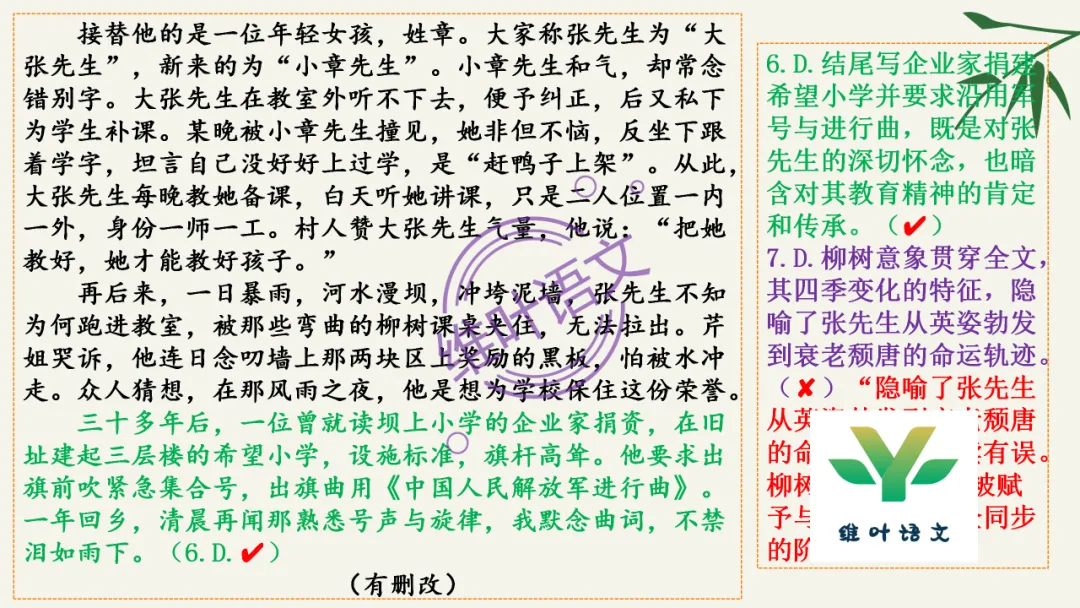 接替他的是一位年轻女孩，姓章。大家称张先生为“大
张先生”，新来的为“小章先生”。小章先生和气，却常念
错别字。大张先生在教室外听不下去，便予纠正，后又私下
为学生补课。某晚被小章先生撞见，她非但不恼，反坐下跟
着学字，坦言自己没好好上过学，是“赶鸭子上架”。从此，
大张先生每晚教她备课，白天听她讲课，只是二人位置一内
一外，身份一师一工。村人赞大张先生气量，他说：“把她
教好，她才能教好孩子。”
再后来，一日暴雨，河水漫坝，冲垮泥墙，张先生不知
为何跑进教室，被那些弯曲的柳树课桌夹住，无法拉出。芹
姐哭诉，他连日念叨墙上那两块区上奖励的黑板，怕被水冲
走。众人猜想，在那风雨之夜，他是想为学校保住这份荣誉。
三十多年后，一位曾就读坝上小学的企业家捐资，在旧
址建起三层楼的希望小学，设施标准，旗杆高耸。他要求出
旗前吹紧急集合号，出旗曲用《中国人民解放军进行曲》。
一年回乡，清晨再闻那熟悉号声与旋律，我默念曲词，不禁
泪如雨下。（6.D.✔）
（有删改）
6.D.结尾写企业家捐建
希望小学并要求沿用军
号与进行曲，既是对张
先生的深切怀念，也暗
含对其教育精神的肯定
和传承。（✔）
7.D.柳树意象贯穿全文，
其四季变化的特征，隐
喻了张先生从英姿勃发
到衰老颓唐的命运轨迹。
（✘）“隐喻了张先生
从英 颓唐
的命 有误。
柳树 被赋
予与 同步
的阶
维叶语文
维叶语文